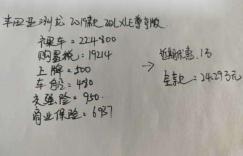 丰田亚洲龙 2019款 2.0L XLE尊贵版
裸车 = 224800
购置税: 19214
上牌 = 500
车船: 480
交强险 = 950.
商业保险 = 6987
→
近期优惠: 1万
全款 = 24.293万元